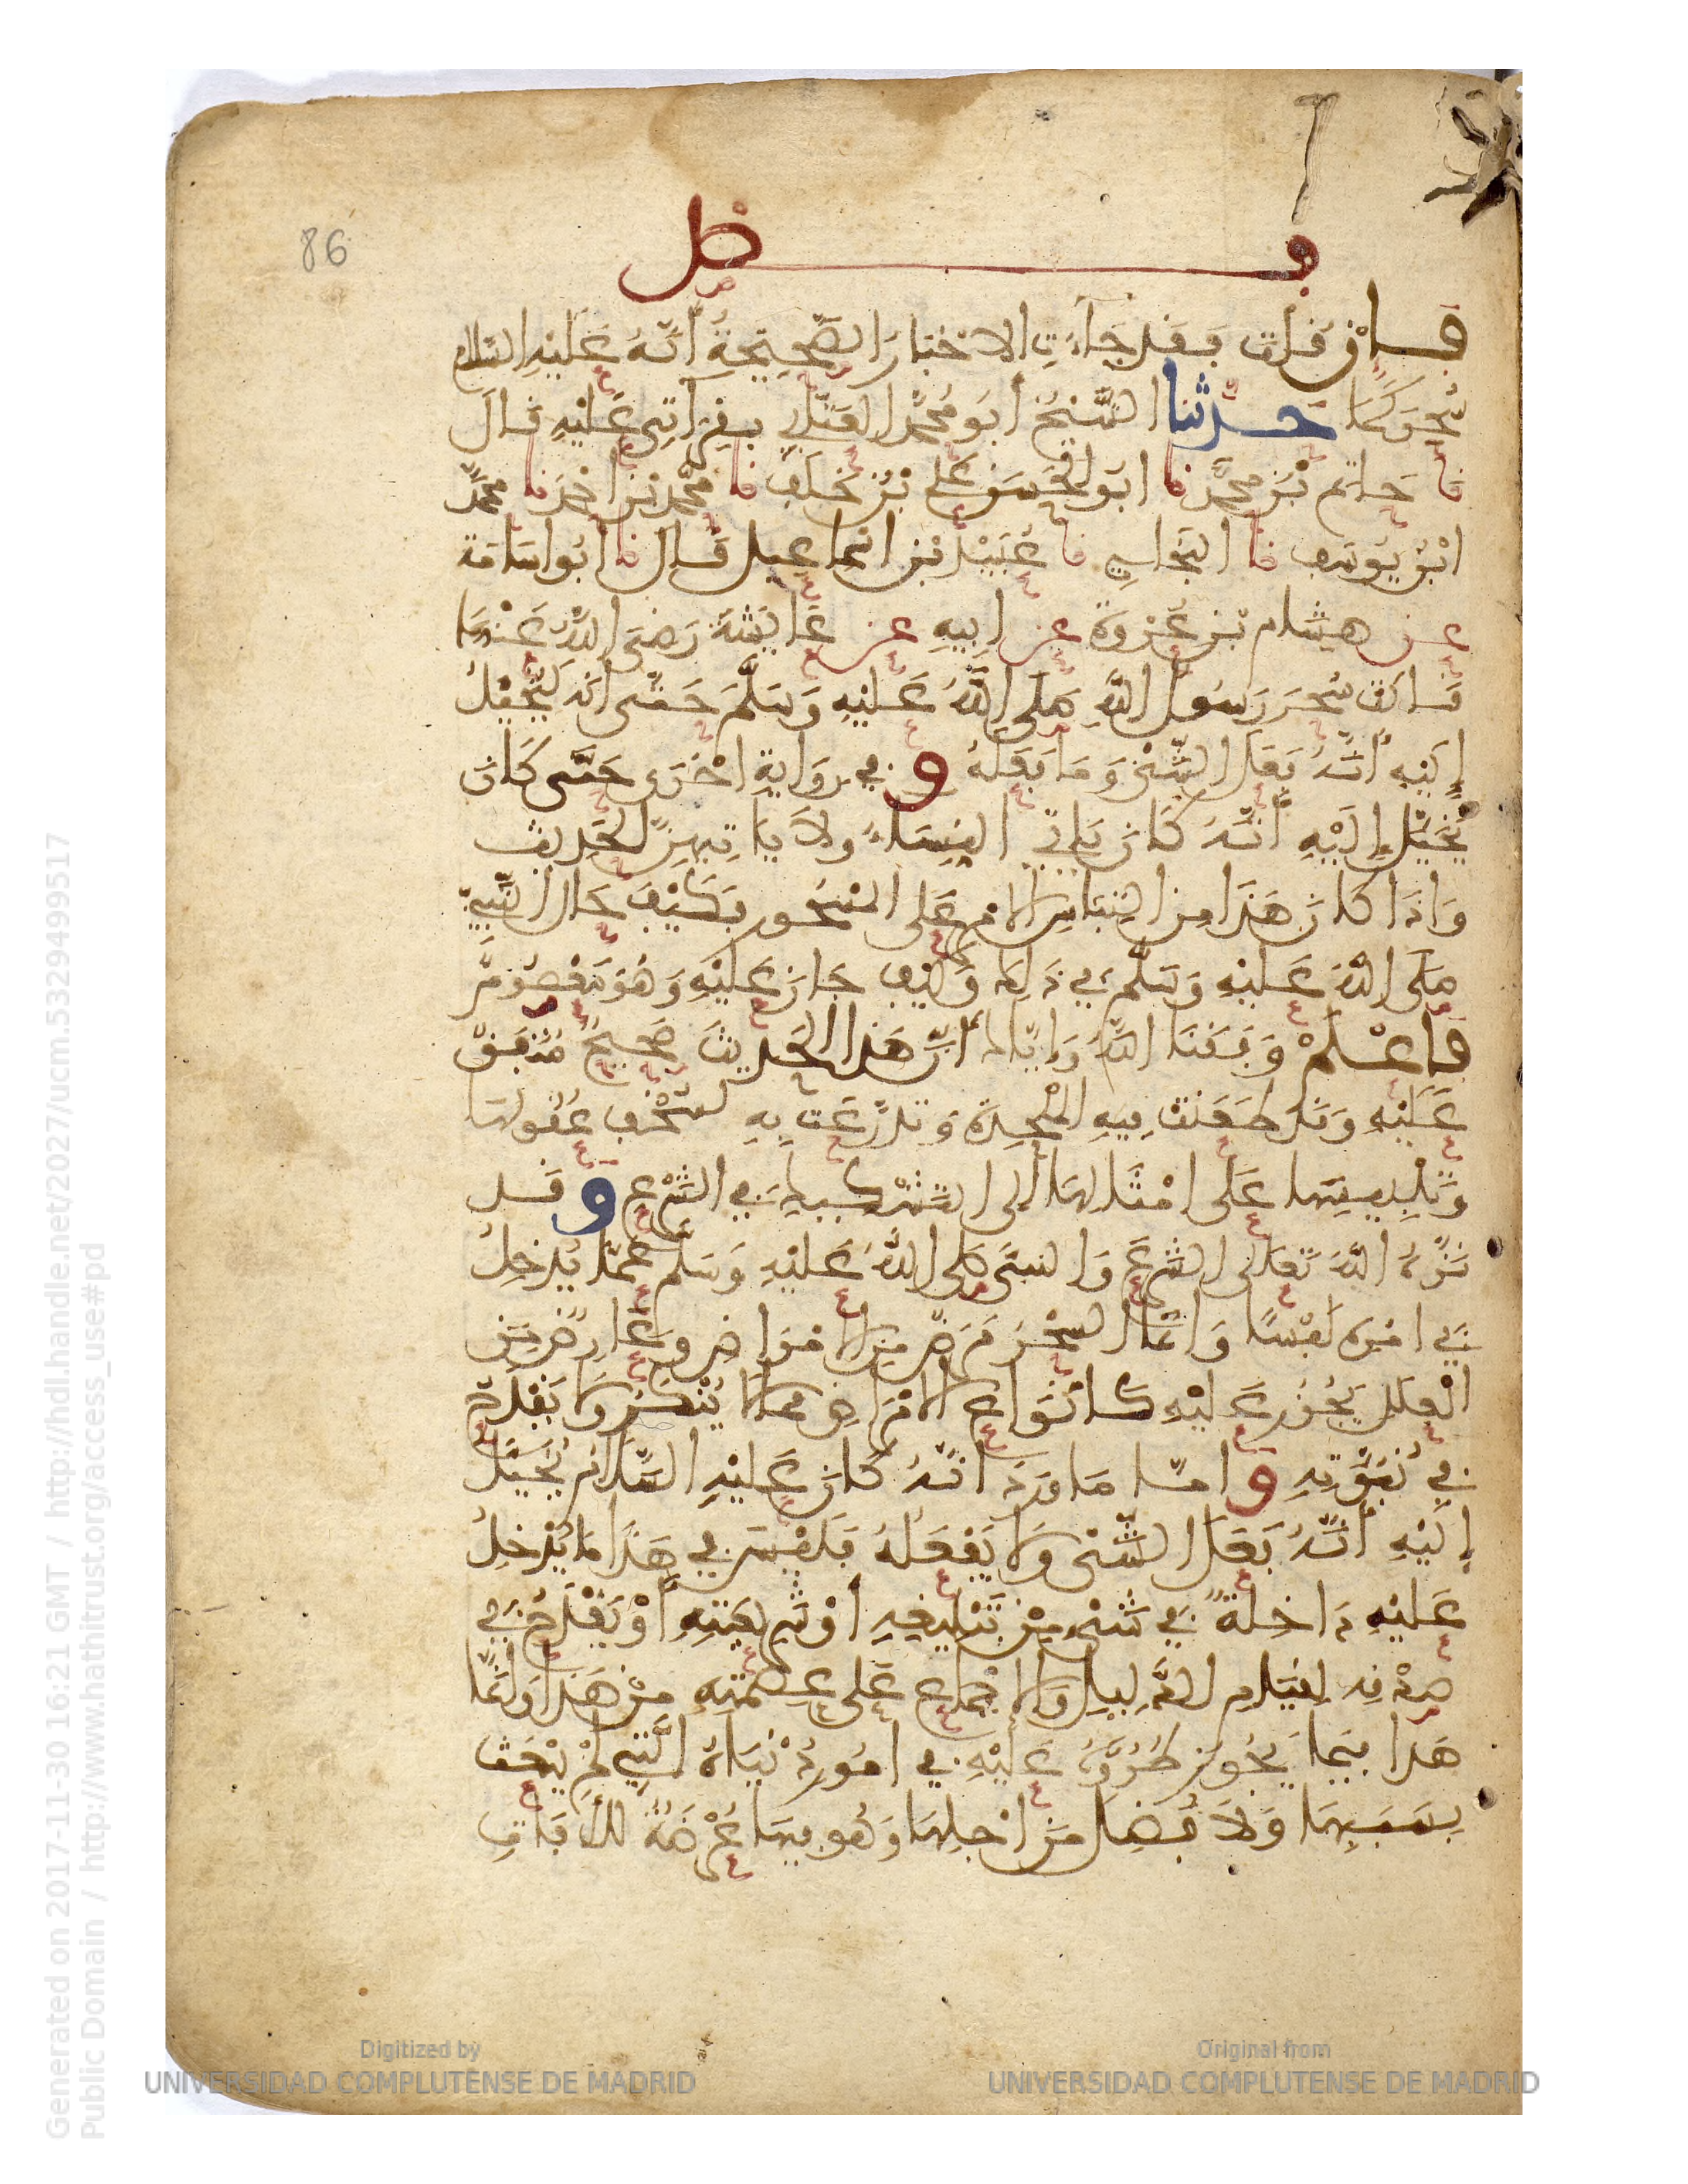 86
فصل
فإن قلت فقد جاءت الاخبار الصحيحة أنّه عليه السلام
سحر كما حدثنا الشيخ ابو محمد العتابي بقراتي عليه قال
نا حاتم بن محمد نا ابو الحسن علي بن خلف نا محمد بن احمد نا محمد
ابن يوسف نا البخاري نا عبيد بن اسماعيل قال نا ابو اسامة
عن هشام بن عروة عن ابيه عن عايشة رضي الله عنها
قالت سحر رسول الله صلى الله عليه وسلم حتى انه ليخيل
إليه أنّه فعل الشيء وما فعله و في رواية اخرى حتى كان
يخيل إليه أنّه كان ياتي النساء ولا ياتيهن الحديث
واذا كان هذا من التباس الامر على المسحور فكيف حال النبي
صلى الله عليه وسلم في ذلك وكيف جاز عليه وهو معصوم
فاعلم وفقنا الله واياك أن هذا الحديث صحيح متفق
عليه وقد طعنت فيه الملحدة وتدرعت به لسخف عقولها
وتلبيسها على امثالها الى التشكيك في الشرع و قد
نزه الله تعالى الشرع والنبي صلى الله عليه وسلم عما يدخل
في امره لبسا وانما السحر مرض من الامراض وعارض من
العلل يجوز عليه كانواع الامراض مما لا ينكر ولا يقدح
في نبوته و اما ما ورد انّه كان عليه السلام يخيل
إليه أنّه فعل الشيء ولا يفعله فليس في هذا ما يدخل
عليه داخلة في شيء من تبليغه أو شريعته أو يقدح في
صدقه لقيام الدليل والاجماع على عصمته من هذا وانما
هذا فيما يجوز طروه عليه في امور دنياه التي لم يبعث
بسببها ولا فضل من اجلها وهو فيها عرضة للافات
Generated on 2017-11-30 16:21 GMT / http://hdl.handle.net/2027/ucm.5329499517
Public Domain / http://www.hathitrust.org/access_use#pd
Digitized by
UNIVERSIDAD COMPLUTENSE DE MADRID
Original from
UNIVERSIDAD COMPLUTENSE DE MADRID